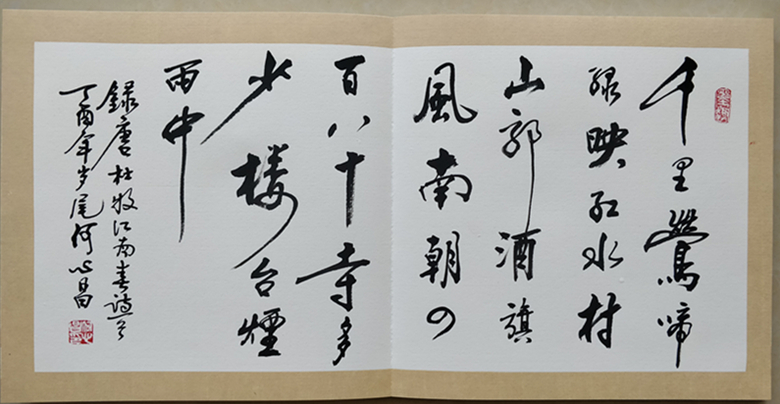 千里鶯啼
绿映红水村
山郭酒旗
風南朝四
百八十寺多
少楼台煙
雨中
録唐杜牧江南春詩
丁酉年岁尾何心昌